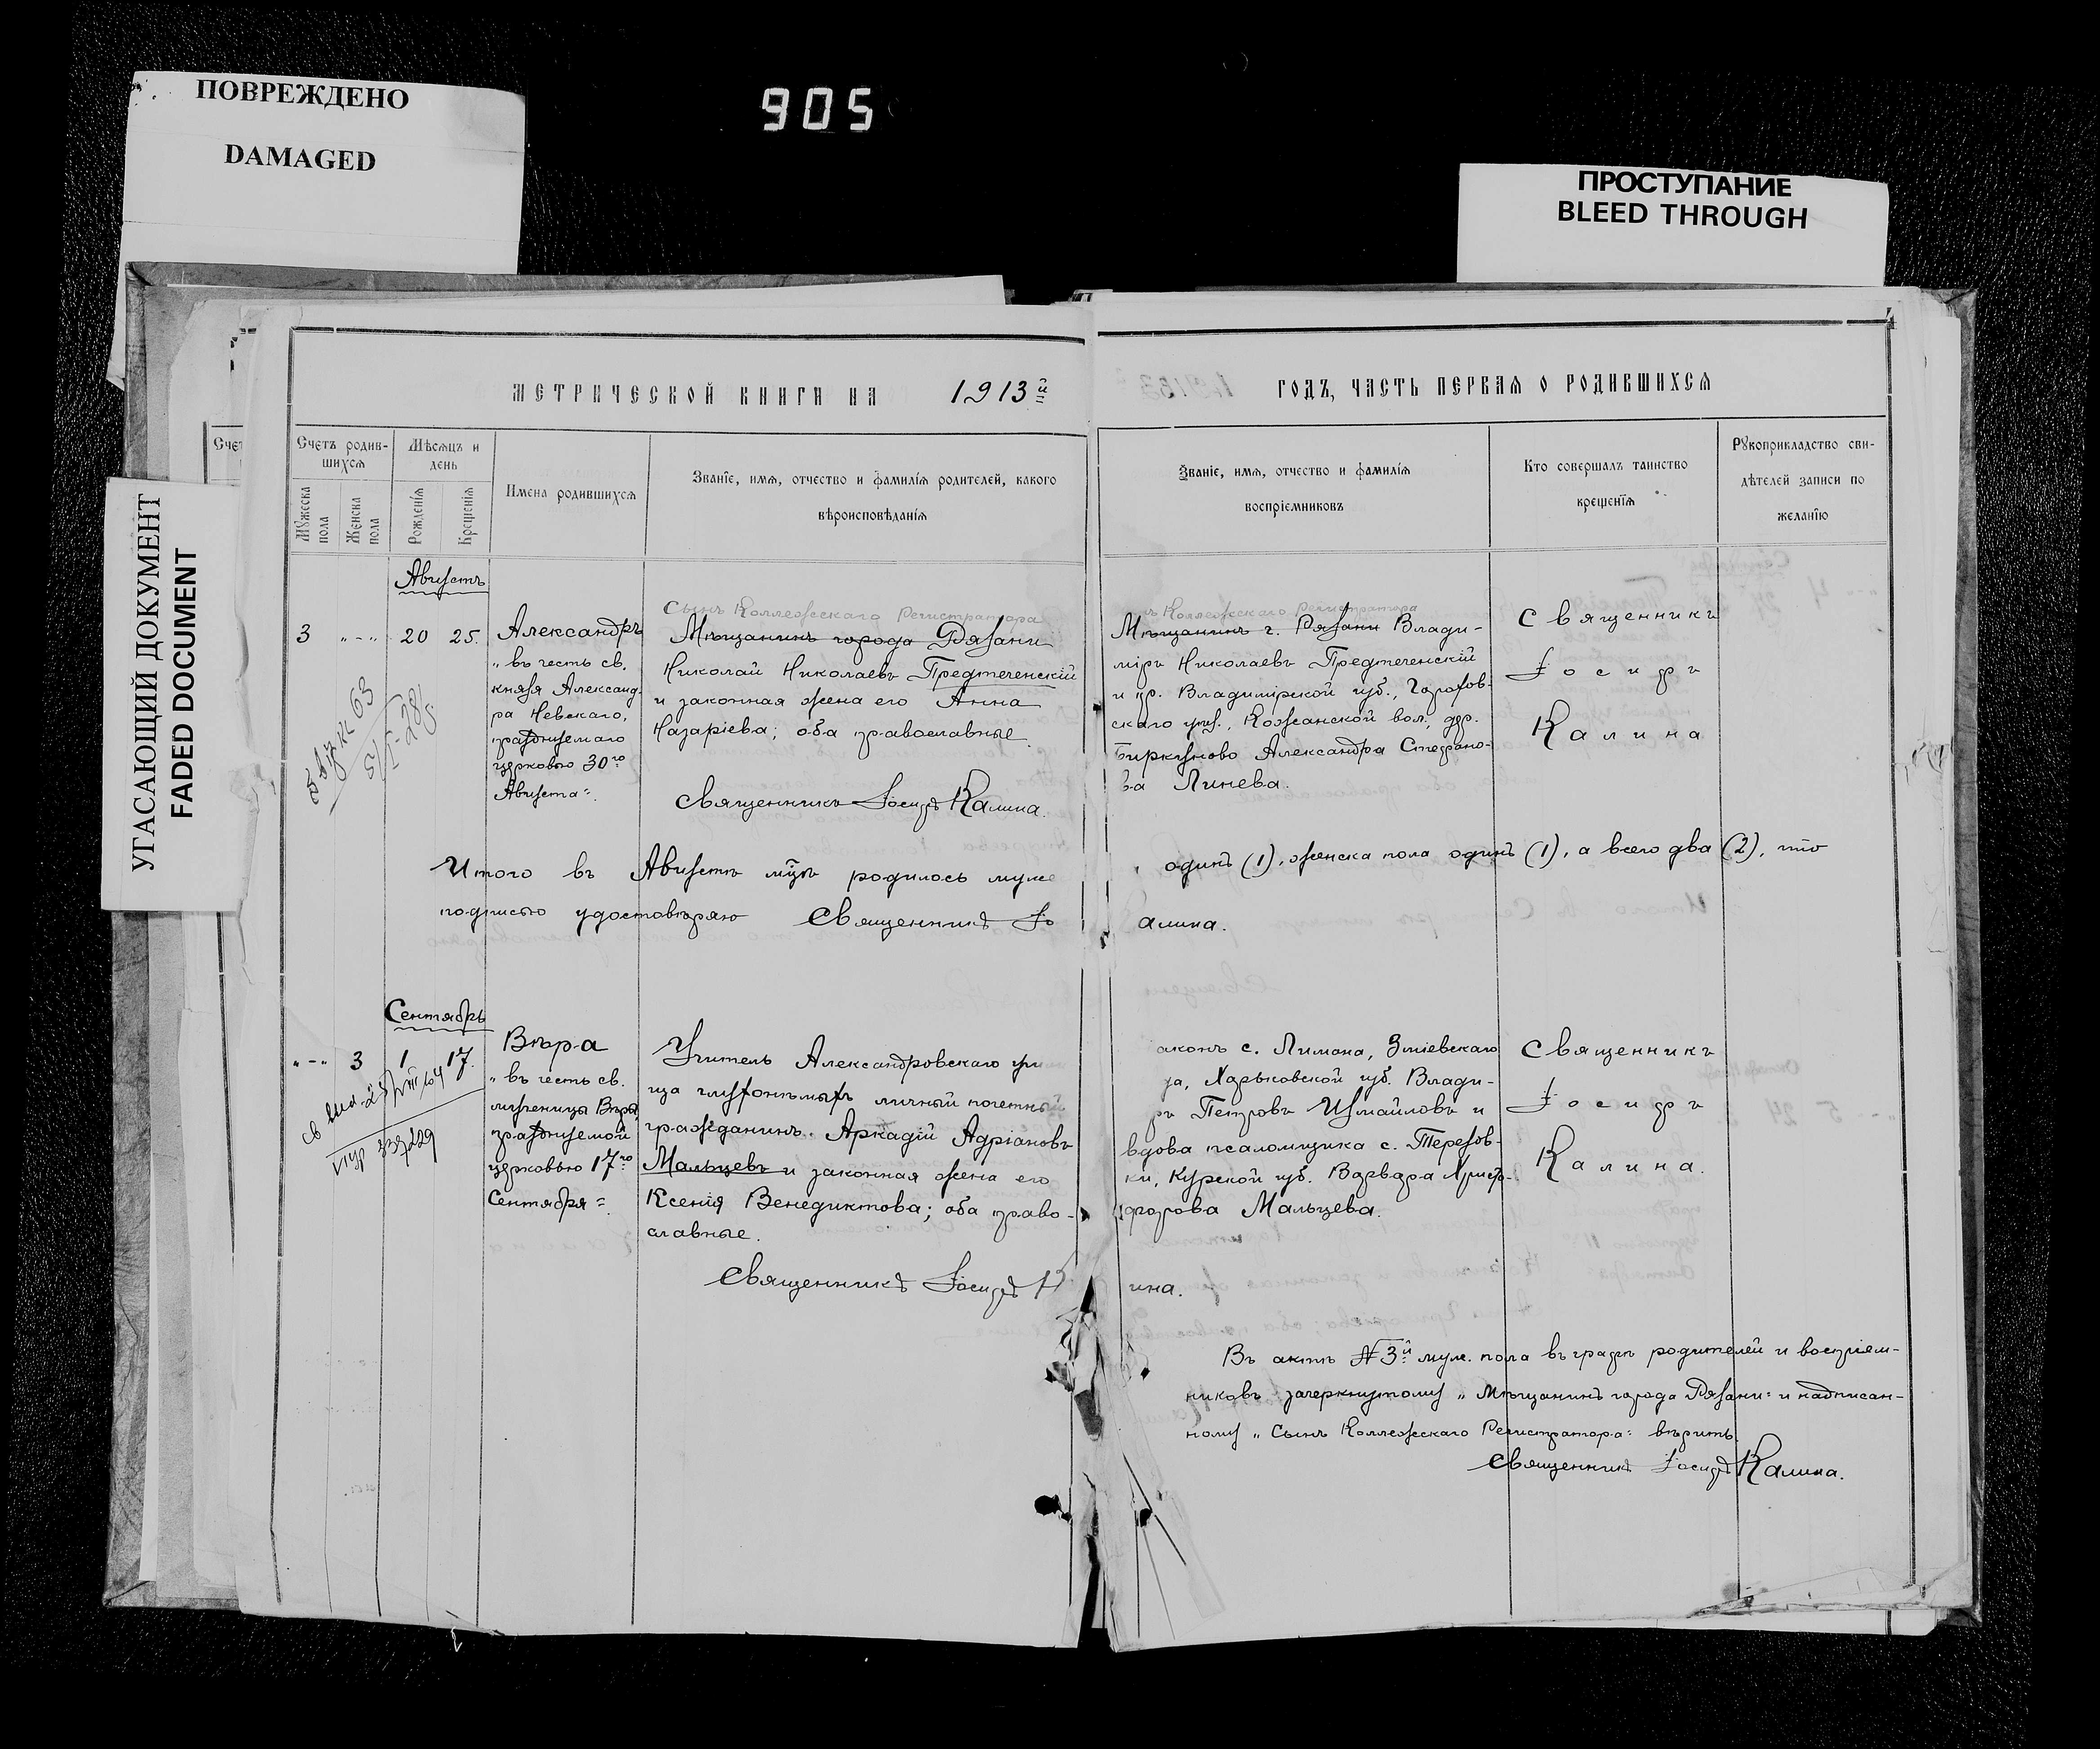 ПОВРЕЖДЕНО
DAMAGED
905
ПРОСТУПАНИЕ
BLEED THROUGH
УГАСАЮЩИЙ ДОКУМЕНТ
FADED DOCUMENT
МЕТРИЧЕСКОЙ КНИГИ НА 1913й
Счетъ родив-
шихся
Мужеска пола
Женска пола
Мѣсяцъ и
день
Рожденія
Крещенія
Имена родившихся
Званіе, имя, отчество и фамилія родителей, какого
вѣроисповѣданія
Августъ
3 "-" 20 25.
Александръ
"въ честь св.
князя Александ-
ра Невскаго,
празднуемаго
церковью 30го
Августа".
Сынъ Коллежскаго Регистратора
Мѣщанинъ города Рязани
Николай Николаевъ Предтеченскій
и законная жена его Анна
Назаріева; оба православные.
Священникъ Іосифъ Калина.
Итого въ Августѣ мцѣ родилось муже
подписью удостовѣряю Священникъ Іо
Сентябрь
"-" 3 1 17.
Вѣра
"въ честь св.
мученицы Вѣры,
празднуемой
церковью 17го
Сентября".
Учитель Александровскаго учи
ща глухонѣмыхъ личный почетный
гражданинъ Аркадій Адріановъ
Мальцевъ и законная жена его
Ксенія Венедиктова; оба право-
славные.
Священникъ Іосифъ К
ГОДЪ, ЧАСТЬ ПЕРВАЯ О РОДИВШИХСЯ
Званіе, имя, отчество и фамилія
воспріемниковъ
Кто совершалъ таинство
крещенія
Рукоприкладство сви-
дѣтелей записи по
желанію
ъ Коллежскаго Регистратора
Мѣщанинъ г. Рязани Влади-
міръ Николаевъ Предтеченскій
и кр. Владимірской губ., Горохов-
скаго уѣз., Кожанской вол., дер.
Биркуново Александра Стефано-
ва Линева.
Священникъ
Іосифъ
Калина
одинъ (1), женска пола одинъ (1), а всего два (2), что
алина.
аконъ с. Лимана, Зміевскаго
да, Харьковской губ. Влади-
ръ Петровъ Измайловъ и
вдова псаломщика с. Терехов-
ки, Курской губ. Варвара Христо-
форова Мальцева.
Священникъ
Іосифъ
Калина.
ина.
Въ актѣ №3й муж. пола въ графѣ родителей и воспріем-
никовъ зачеркнутому "Мѣщанинъ города Рязани" и надписан-
ному "Сынъ Коллежскаго Регистратора" вѣрить.
Священникъ Іосифъ Калина.